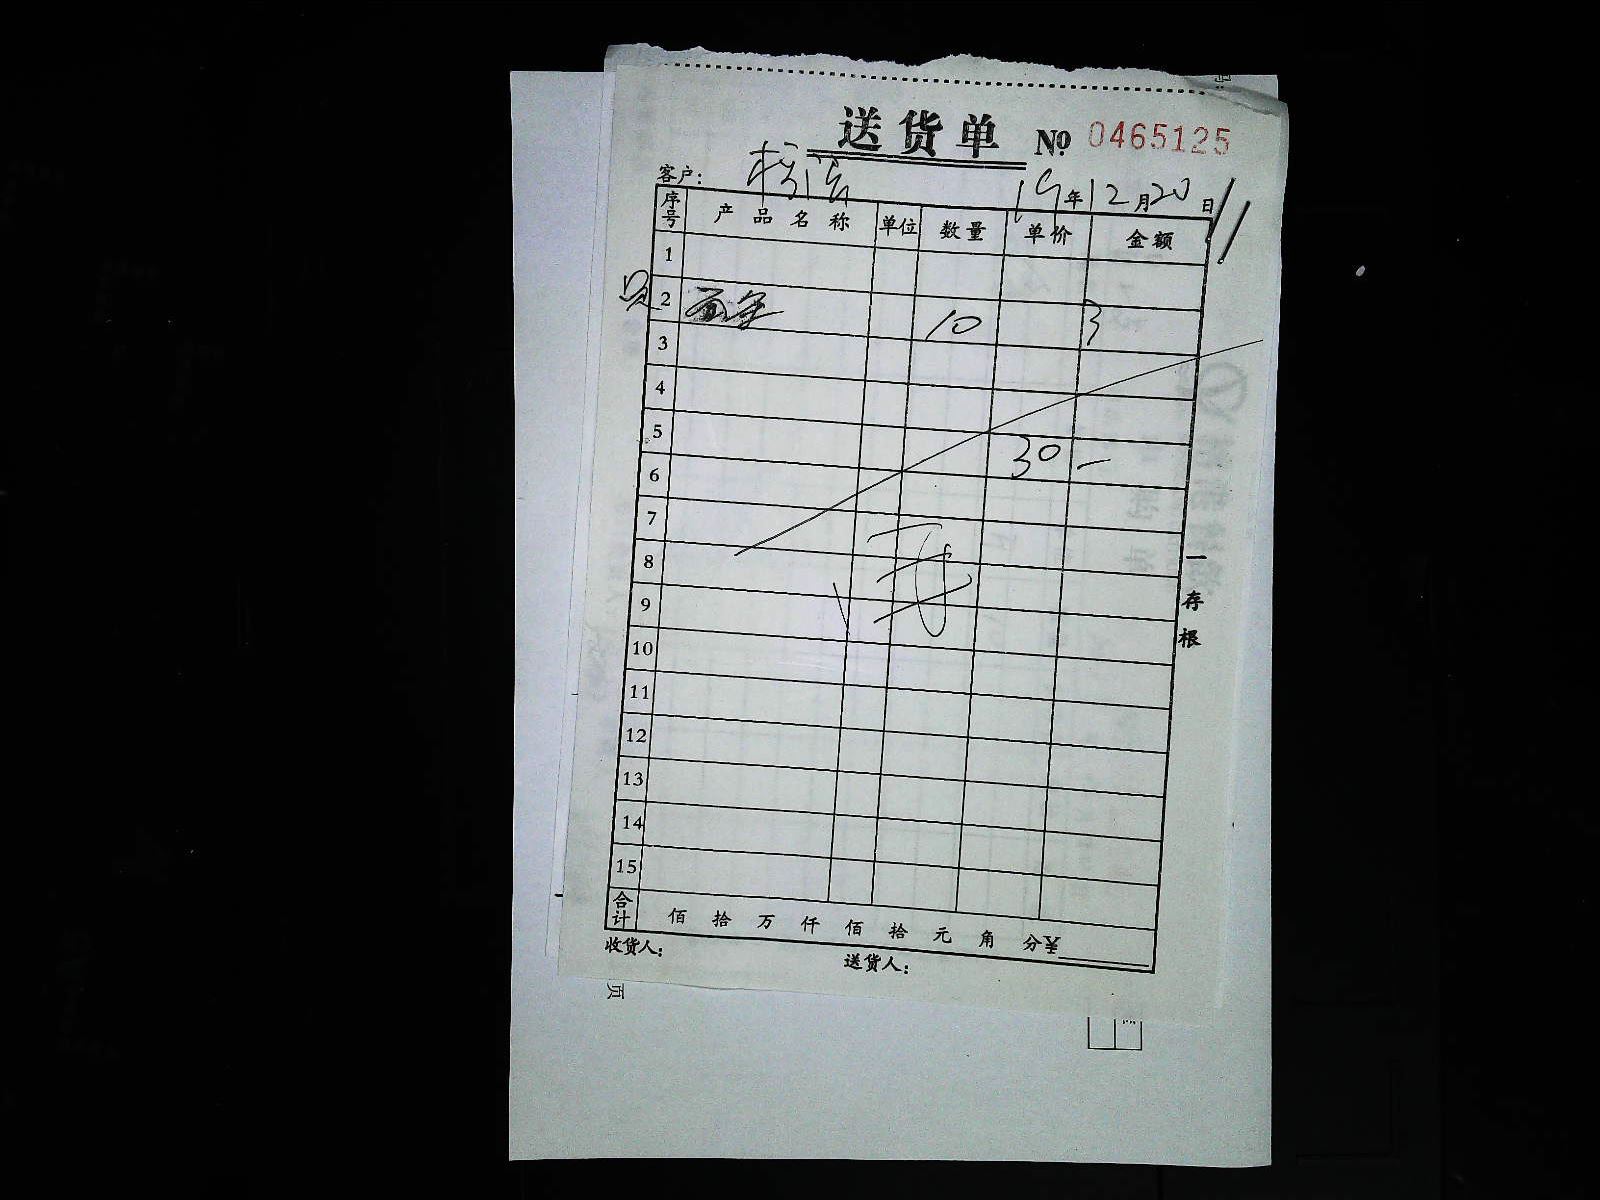 送货单 № 0465125
客户：
19年12月20日
序号 产品名称 单位 数量 单价 金额
1
2 10 3
3
4
5
30 —
6
7
8
9
10
11
12
13
14
15
合计 佰 拾 万 仟 佰 拾 元 角 分¥
收货人： 送货人：
一存根
页